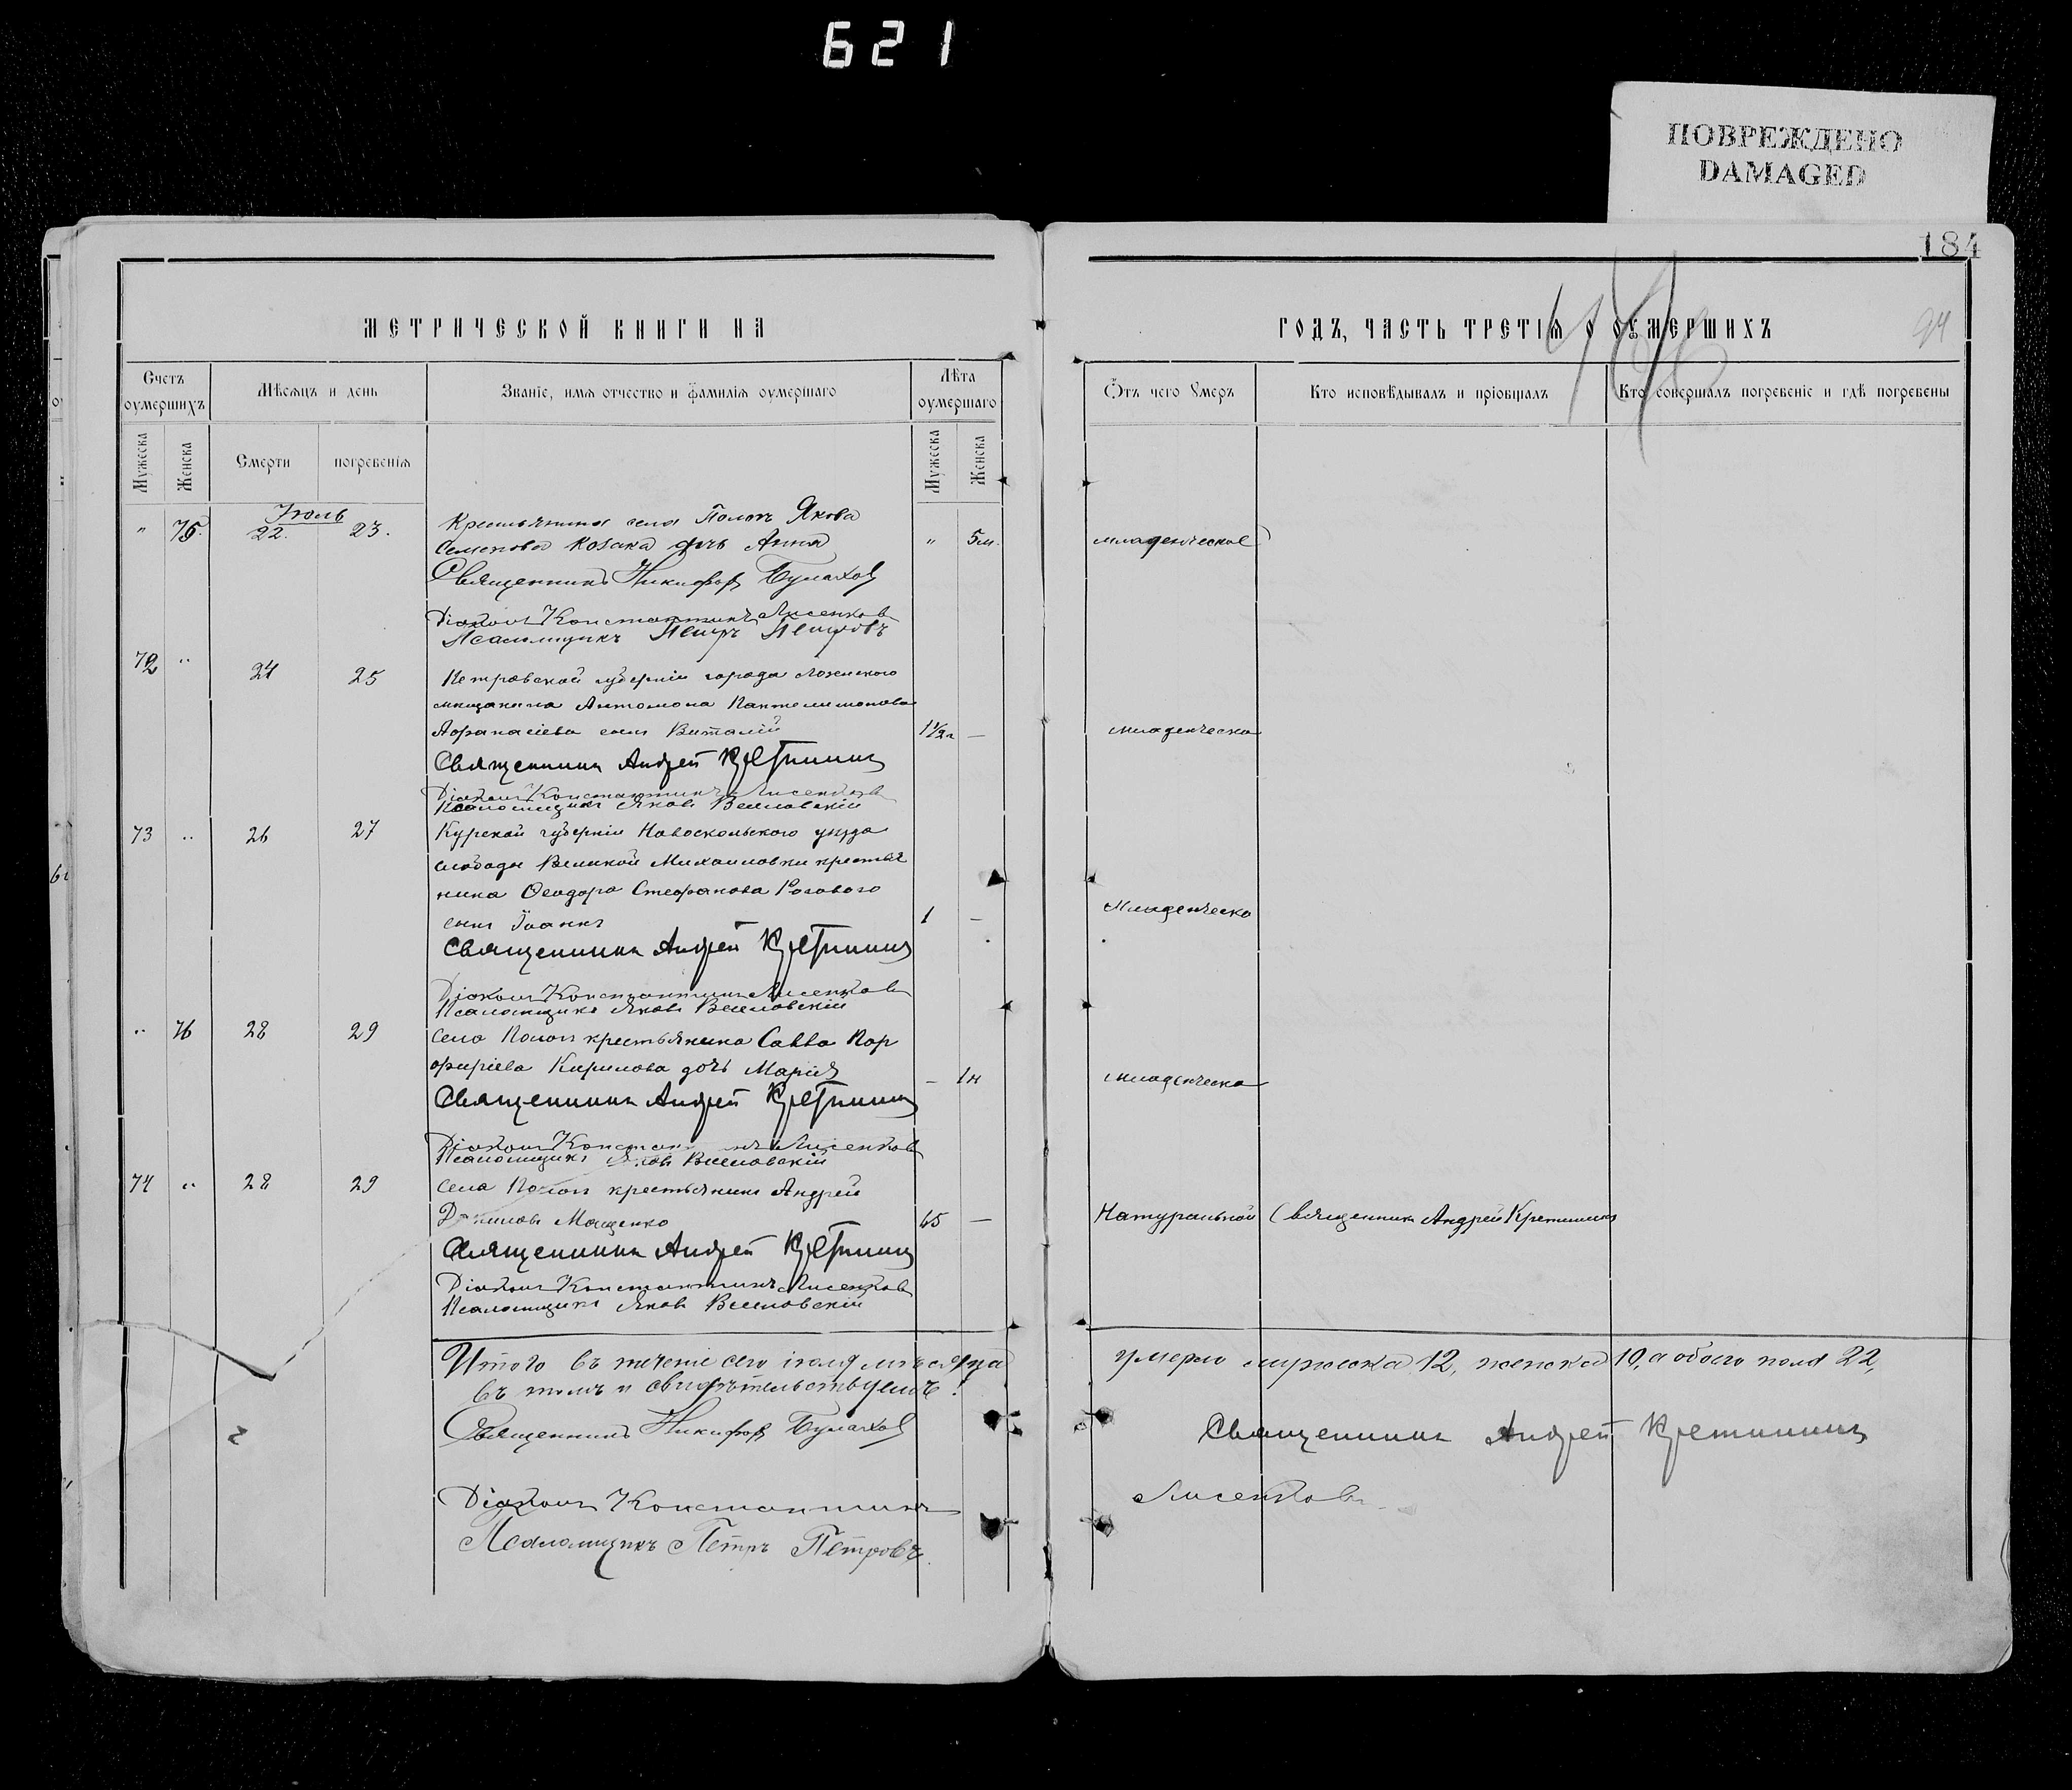 621
ПОВРЕЖДЕНО
DAMAGED
184
94
МЕТРИЧЕСКОЙ КНИГИ НА
ГОДЪ, ЧАСТЬ ТРЕТІѦ О ОУМЕРШИХЪ
Счетъ оумершихъ
Мѣсяцъ и день
Званіе, имѧ отчество и фамиліѧ оумершаго
Лѣта оумершаго
Ѿтъ чего Умеръ
Кто исповѣдывалъ и пріобщалъ
Кто совершалъ погребеніе и гдѣ погребены
Мужеска
Женска
Смерти
погребеніѧ
Мужеска
Женска
Іюль
" 75. 22. 23. Крестьянина села Пологъ Якова
Семенова Козака дочь Анна " 5м. младенческое
Священникъ Никифоръ Булаховъ
Діаконъ Константинъ Лисенковъ
Псаломщикъ Петръ Петровъ
72 " 24 25 губерніи города
мещанина Антонова Пантелимонова
Афанасіева сынъ Виталій 1½г — младенческа
Священникъ Андрей Кретининъ
Діаконъ Константинъ Лисенковъ
Псаломщикъ Яковъ Веселовскій
73 " 26 27 Курской губерніи Новоскольского уезда
слободы Великой Михаиловки крестья
нина Феодора Стефанова Рогового
сынъ Іоаннъ 1 — Младенческа
Священникъ Андрей Кретининъ
Діаконъ Константинъ Лисенковъ
Псаломщикъ Яковъ Веселовскій
" 76 28 29 Села Пологъ крестьянина Савва Пор
фиріева Кирилова дочь Марія — 1н младенческа
Священникъ Андрей Кретининъ
Діаконъ Константинъ Лисенковъ
Псаломщикъ Яковъ Веселовскій
74 " 28 29 Села Пологъ крестьянинъ Андрей
Даниловъ Мащенко 65 — Натуральной Священникъ Андрей Кретининъ
Священникъ Андрей Кретининъ
Діаконъ Константинъ Лисенковъ
Псаломщикъ Яковъ Веселовскій
Итого въ теченіе сего іюля мѣсяца умерло мужеска 12, женска 10, а обоего пола 22,
въ томъ и свидѣтельствуемъ:
Священникъ Никифоръ Булаховъ
Священникъ Андрей Кретининъ
Діаконъ Константинъ Лисенковъ
Псаломщикъ Петръ Петровъ.